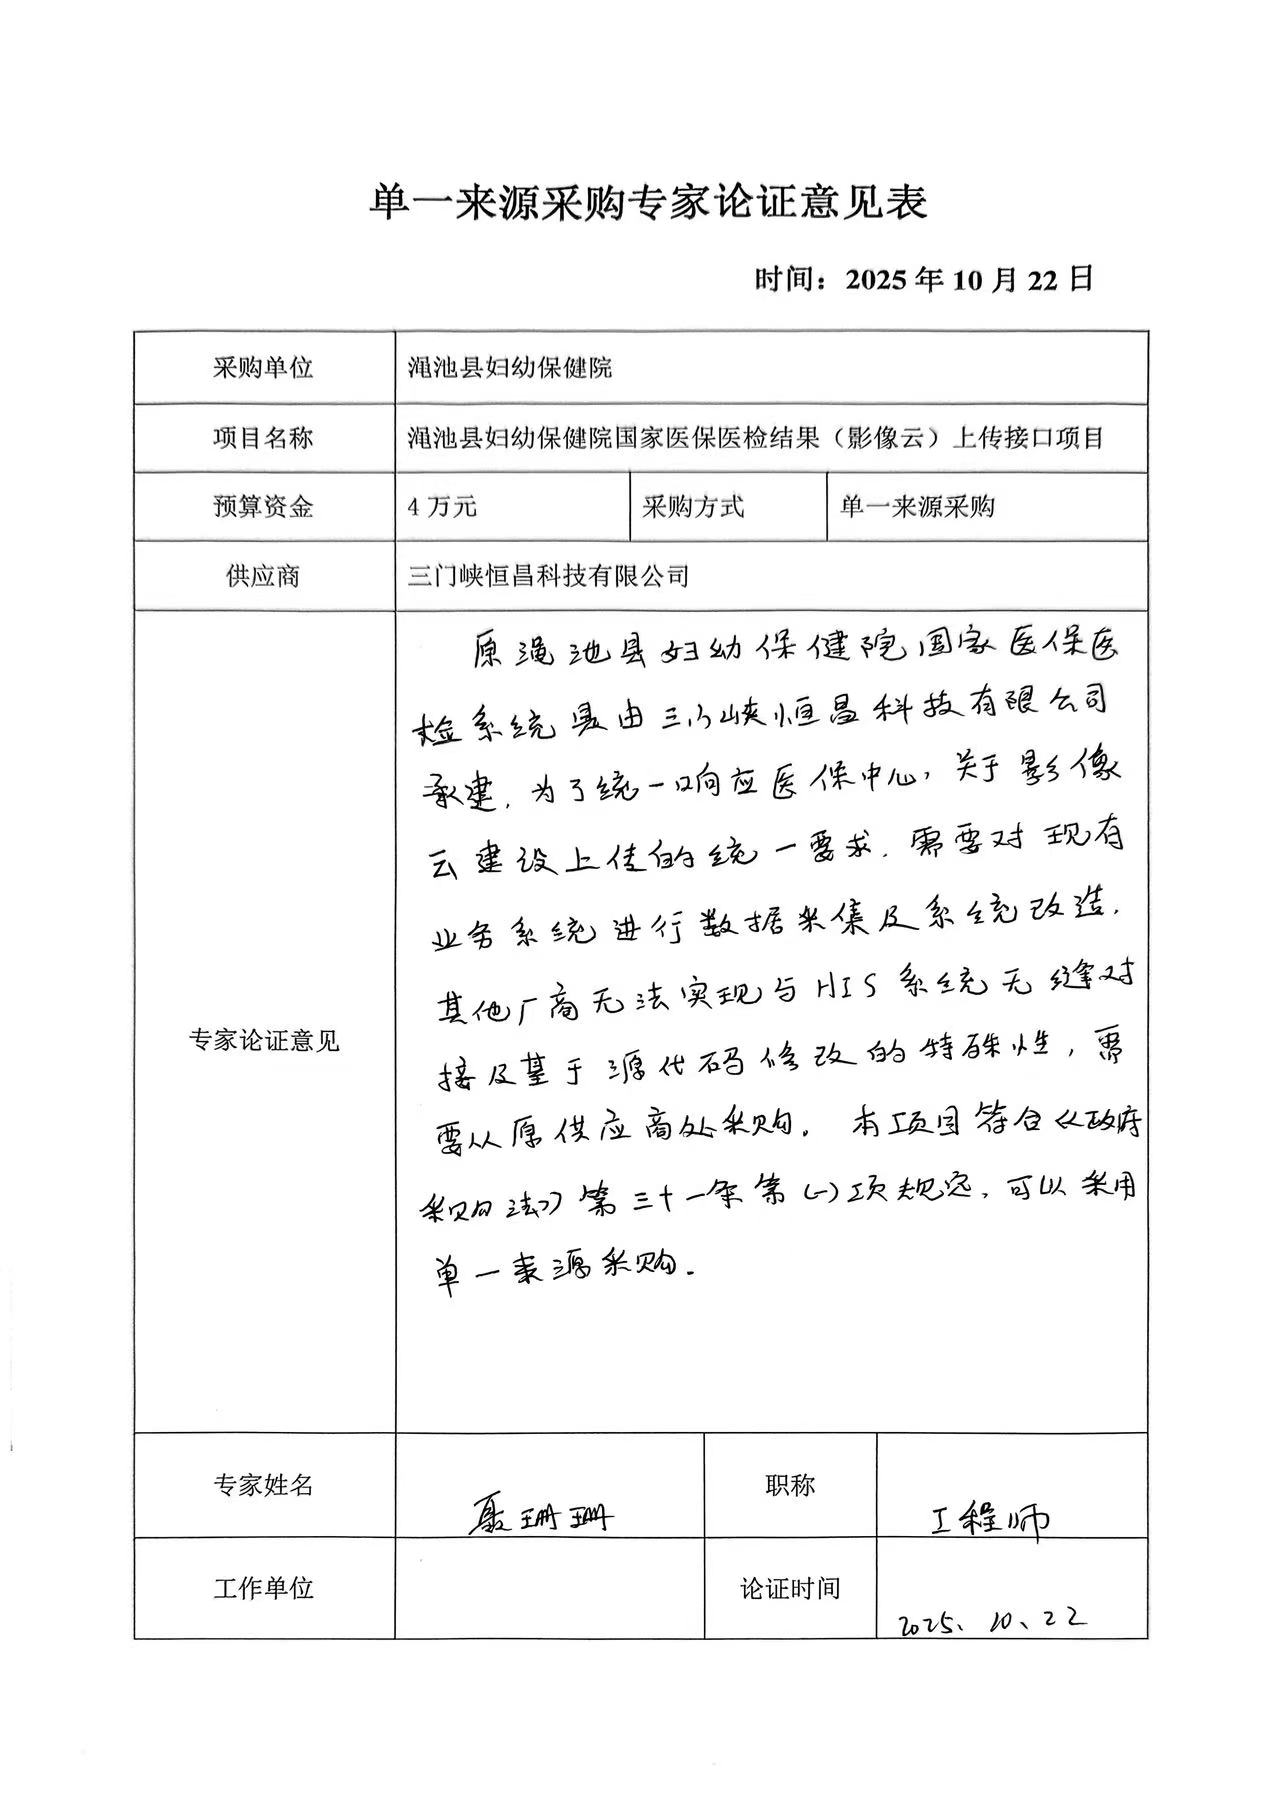 单一来源采购专家论证意见表
时间：2025 年 10 月 22 日
采购单位 渑池县妇幼保健院
项目名称 渑池县妇幼保健院国家医保医检结果（影像云）上传接口项目
预算资金 4 万元 采购方式 单一来源采购
供应商 三门峡恒昌科技有限公司
专家论证意见
原渑池县妇幼保健院国家医保医
检系统是由三门峡恒昌科技有限公司
承建，为了统一响应医保中心，关于影像
云建设上传的统一要求，需要对现有
业务系统进行数据采集及系统改造，
其他厂商无法实现与HIS系统无缝对
接及基于源代码修改的特殊性，需
要从原供应商处采购。本项目符合《政府
采购法》第三十一条第（一）项规定，可以采用
单一来源采购.
专家姓名 聂珊珊 职称 工程师
工作单位 论证时间 2025、10、22